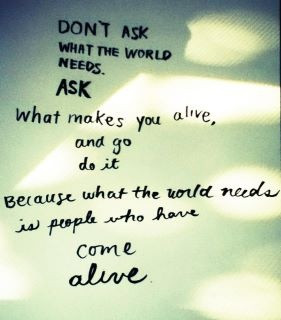 DON'T ASK
WHAT THE WORLD
NEEDS.
ASK
What makes you alive,
and go
do it
Because what the world needs
is people who have
come
alive.